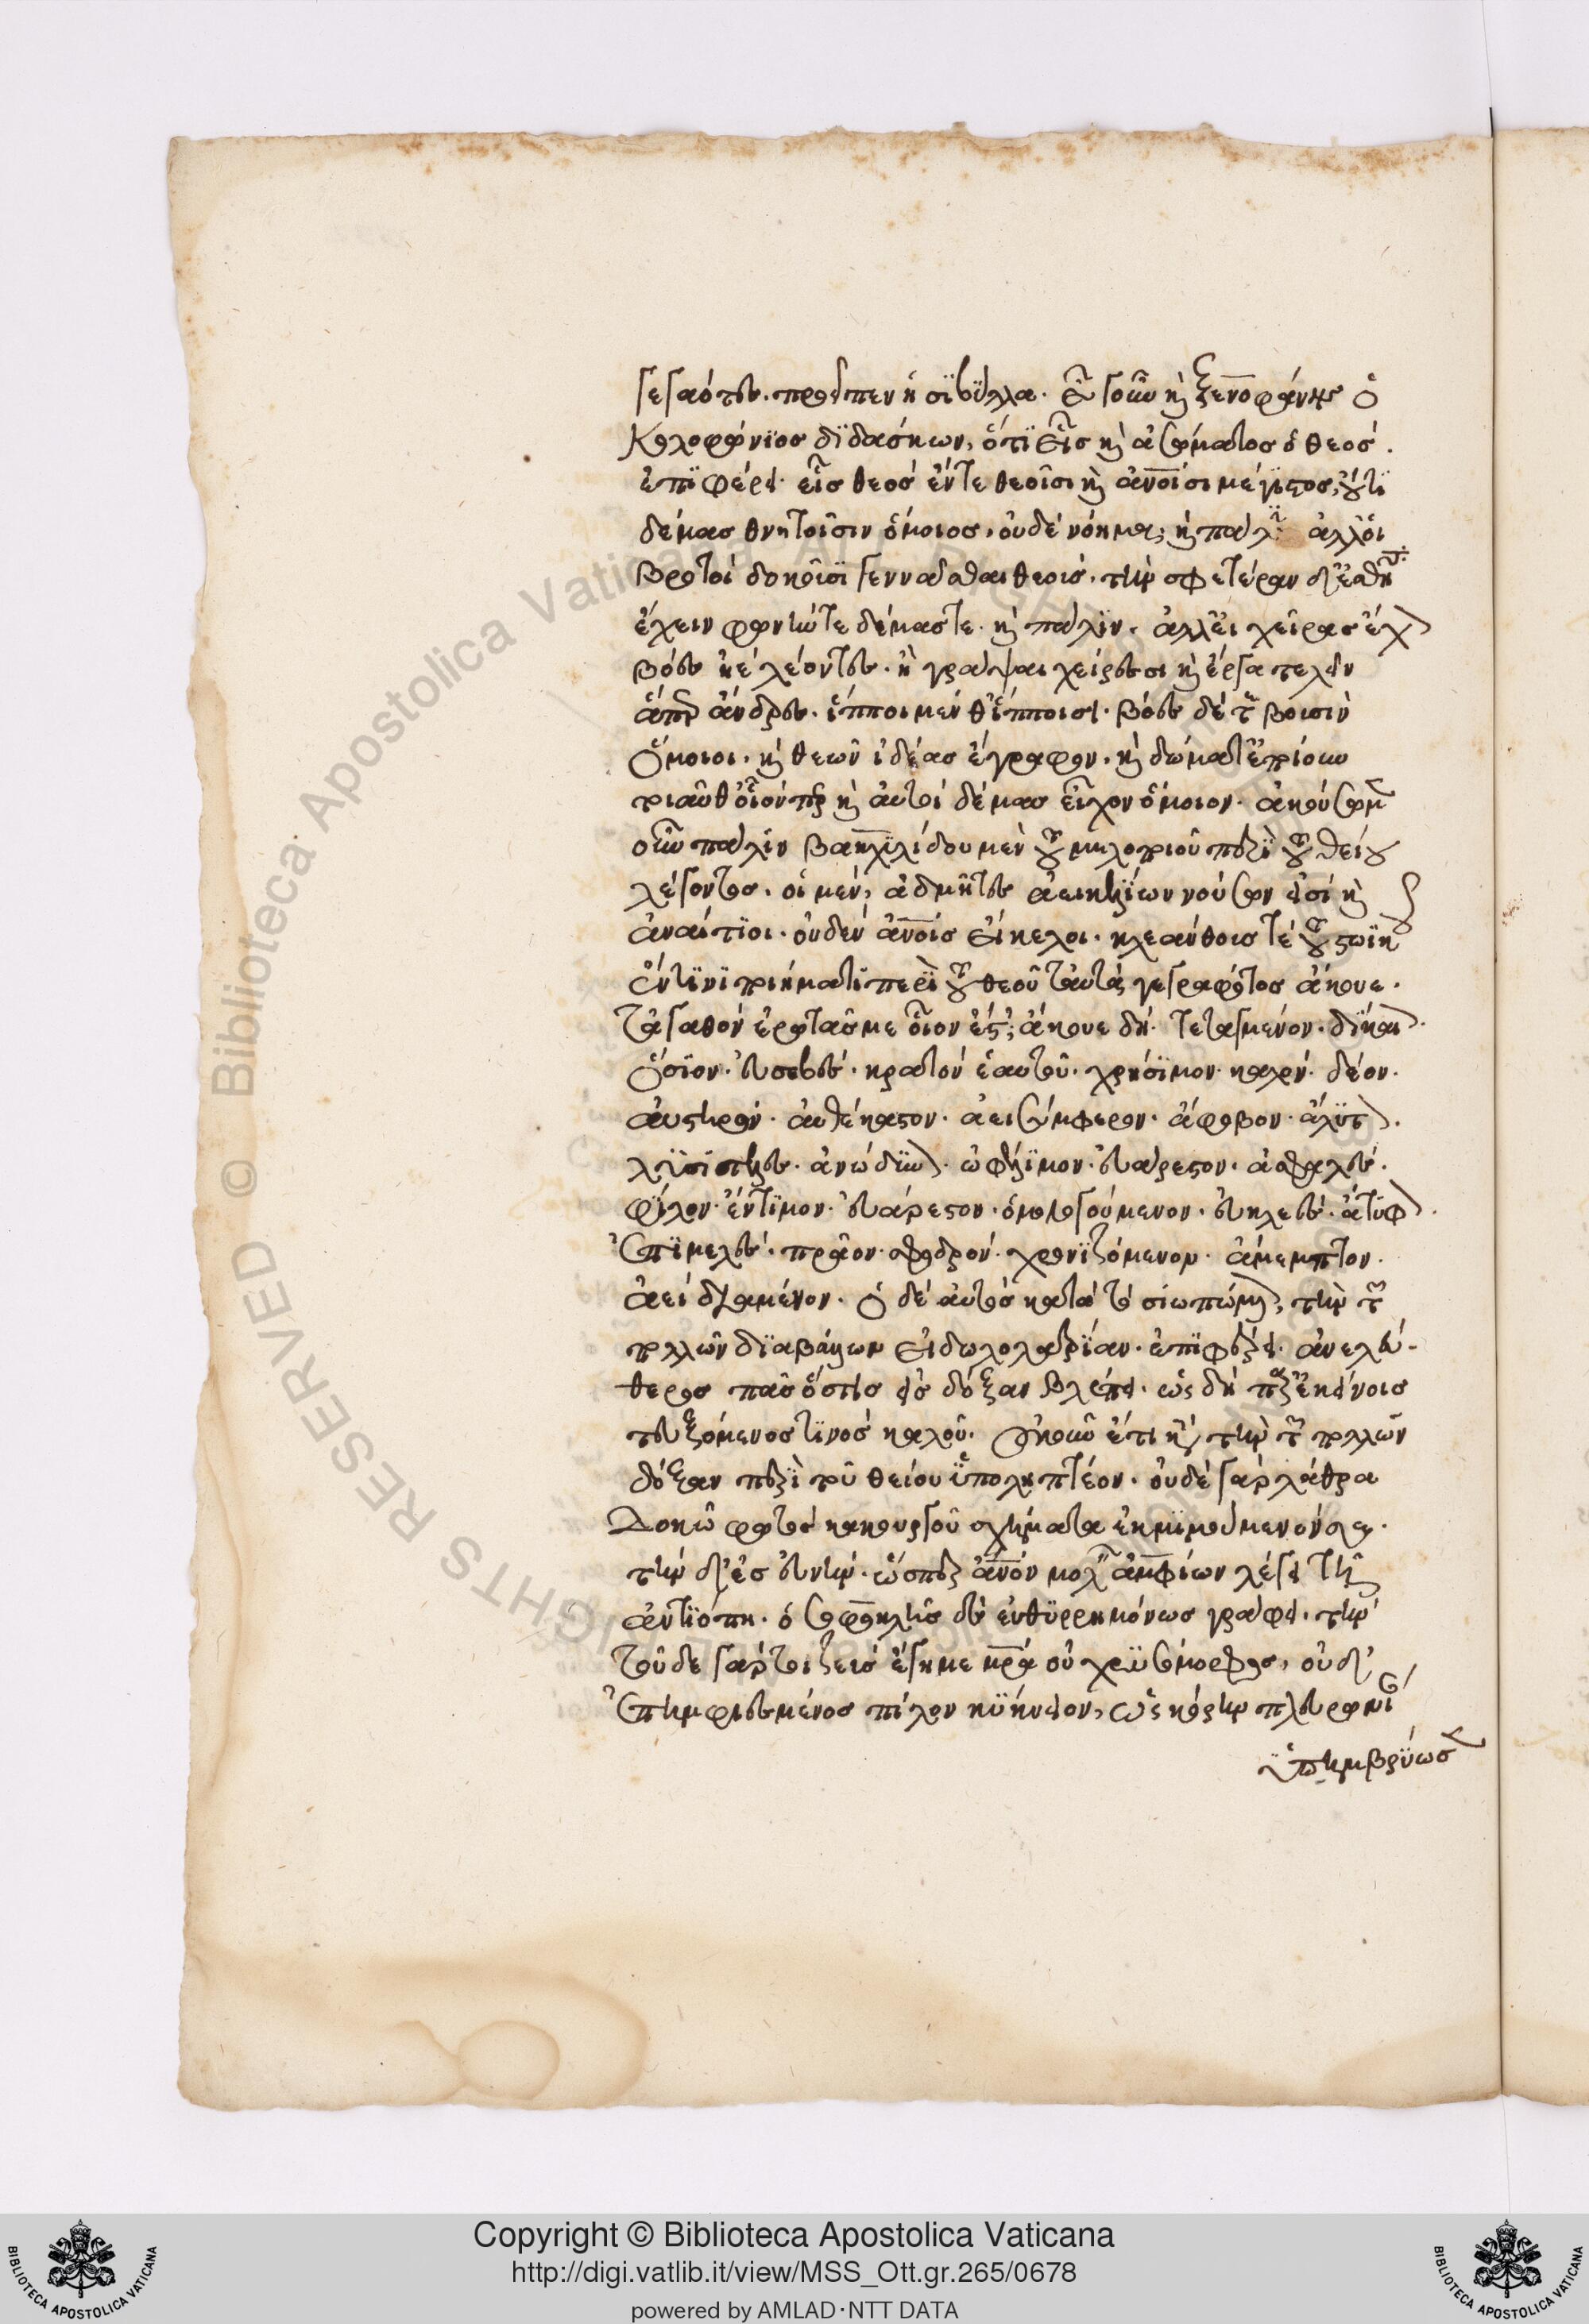 γεγαότες. προσεῖπεν ἡ σίβϋλλα. εὖ γοῦν κὶ ξενοφάνης ὁ
Κολοφώνϊος δϊδάσκων, ὅτϊ εἷς κὶ ἀσώματος ὁ θεός.
ἐπϊφέρει. εἷς θεὸς ἔν τε θεοῖσι κὶ ἀν̅οισι μέγϊστος, οὔτϊ
δέμας θνητοῖσιν ὅμοιος, οὐδὲ νόημα, κὶ πάλ ἀλλ' οἱ
βροτοὶ δοκοῦσϊ γεννᾶσθαι θεούς. τὴν σφετέραν δ' ἐσθῆτ
ἔχειν φωνήν τε δέμας τε. κὶ πάλϊν. ἀλλ' εἰ χεῖρας ἔχ
βόες ἠὲ λέοντες. ἢ γράψαι χείρεσσι κὶ ἔργα τελεῖν
ἅπερ ἄνδρες. ἵπποι μέν θ' ἵπποισι. βόες δέ τε βουσὶν
ὅμοιοι. κὶ θεῶν ἰδέας ἔγραφον. κὶ σώματ' ἐποίουν
τοιαῦθ' οἷόν περ κὶ αὐτοὶ δέμας εἶχον ὅμοιον. ἀκούσωμεν
οὖν πάλϊν βακχϊλίδου μὲν τοῦ μελοποιοῦ περὶ τοῦ θείου
λέγοντος. οἱ μὲν, ἀδμῆτες ἀεικελϊων νούσων εἰσὶ κὶ
ἀναίτϊοι. οὐδὲν ἀν̅οις εἴκελοι. κλεάνθους τὲ τοῦ στωϊκοῦ
ἔν τϊνϊ ποιήματϊ περὶ τοῦ θεοῦ ταῦτα γεγραφότος ἄκουε.
τἀγαθὸν ἐρωτᾷς με οἷον ἐστ; ἄκουε δή. τεταγμένον. δίκαι.
ὅσϊον. εὐσεβές. κρατοῦν ἑαυτοῦ. χρήσϊμον. καλόν. δέον.
αὐστηρόν. αὐθέκαστον. ἀεὶ σύμφερον. ἄφοβον. ἄλϋπ.
λυσιτελές. ἀνώδϋν. ὠφέλϊμον. εὐάρεστον. ἀσφαλές.
φίλον. ἔντϊμον. εὐάρεστον. ὁμολογούμενον. εὐκλεές. ἄτϋφ.
ἐπϊμελές. πρᾶον. σφοδρόν. χρονϊζόμενον. ἄμεμπτον.
ἀεὶ διαμένον. ὁ δὲ αὐτὸς κατὰ τὸ σιωπώμε, τὴν τῶν
πολλῶν δϊαβάλλων εἰδωλολατρίαν. ἐπϊφέρει. ἀνελεύ-
θερος πᾶς ὅστις εἰς δόξαν βλέπει. ὡς δὴ παρ' ἐκείνοις
τευξόμενος τϊνὸς καλοῦ. οὐκοῦν ἔτι κατὰ τὴν τῶν πολλῶν
δόξαν περὶ τοῦ θείου ὑποληπτέον. οὐδὲ γὰρ λάθρα
Δοκῶ φωτὸς κακούργου σχήματα ἐκμϊμούμενόν σοι.
τὴν δ' ἐς εὐνὴν. ὥσπερ ἄν̅ον μολεῖν ἀμφίων λέγει τῇ
ἀντϊόπῃ. ὁ σοφοκλῆς δὲ εὐθϋρρημόνως γράφει. τὴν
τοῦδε γάρ τοι ζεὺς ἔγημε μρ̅α οὐ χρϋσόμορφος, οὐδ'
ἐπημφιεσμένος πίλον κύκνειον, ὡς κόρην πλευρωνί
ὑπημβρύωσ